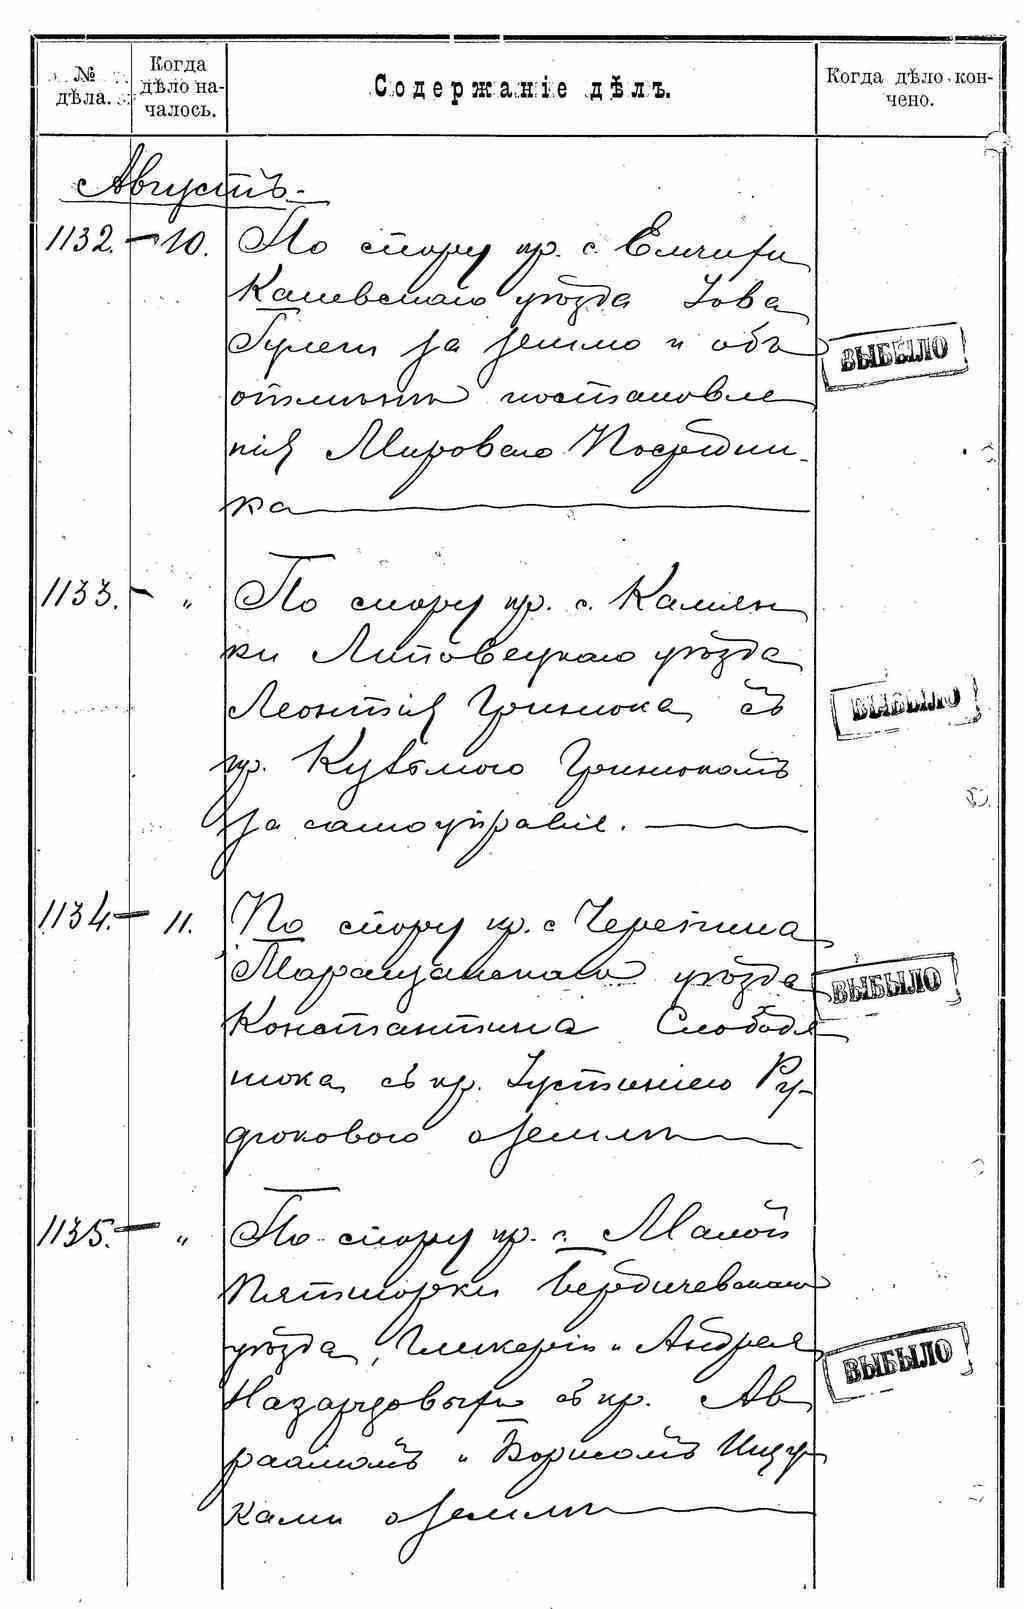 № дѣла.
Когда дѣло на-
чалось.
Содержаніе дѣлъ.
Когда дѣло кон-
чено.
Августъ.
1132. — 10. По спору кр. с. Емчихи
Каневскаго уѣзда Іова
Гулеги за землю и объ
отмѣнѣ постановле
нія Мироваго Посредни-
ка
ВЫБЫЛО
1133. — " По спору кр. с. Камян
ки Липовецкаго уѣзда
Леонтія Гринюка съ
кр. Гринюкомъ
за самоуправіе.
ВЫБЫЛО
1134. — 11. По спору кр. с Черепина
Таращанскаго уѣзда
Константина Слободя
нюка съ кр. Іустиніею Ру-
дюковою о землѣ
ВЫБЫЛО
1135. — " По спору кр. с. Малой
Пятигорки Бердичевскаго
уѣзда, Гликеріи и Андрея
съ кр. Ав
раамомъ и Борисомъ Ищу
ками о землѣ
ВЫБЫЛО